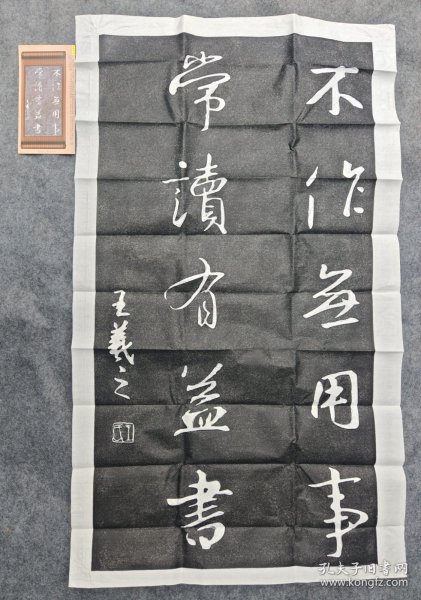 不作無用事
常讀有益書
王羲之
不作無用事
常讀有益書
孔夫子旧书网
www.kongfz.com